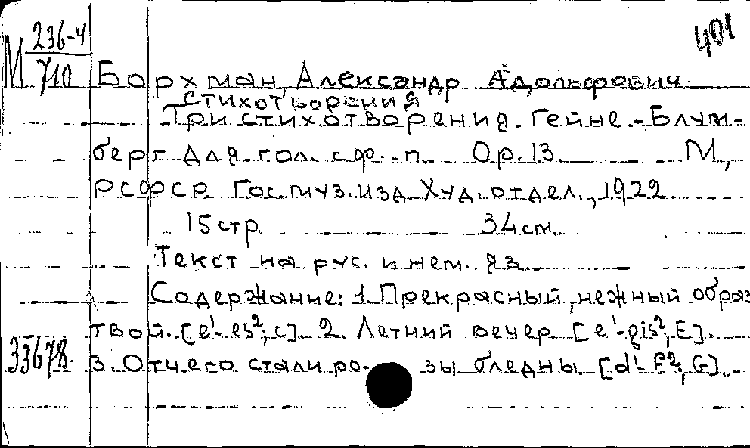 М 236-4/710
401
Борхман, Александр Адольфович
Стихотворения
Три стихотворения. Гейне-Блум-
берг для гол. с ф-п. Op. 13. М,
РСФСР Гос. муз. изд. Худ. отдел., 1922
15 стр. 34 см.
Текст на рус. и нем. яз
Содержание: 1. Прекрасный, нежный образ
твой. [e'-es², c] 2. Летний вечер [e'-gis², E].
33678
3. Отчего стали ро- зы бледны. [d'- , G].